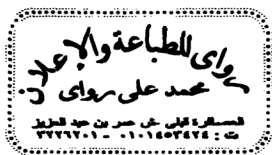 رواى للطباعة والإعلان
محمد على رواى
العساكرة قبلى ش عمر بن عبد العزيز
ت : ٠١٠١٤٥٣٤٢٤ - ٣٢٢٦٢٠١